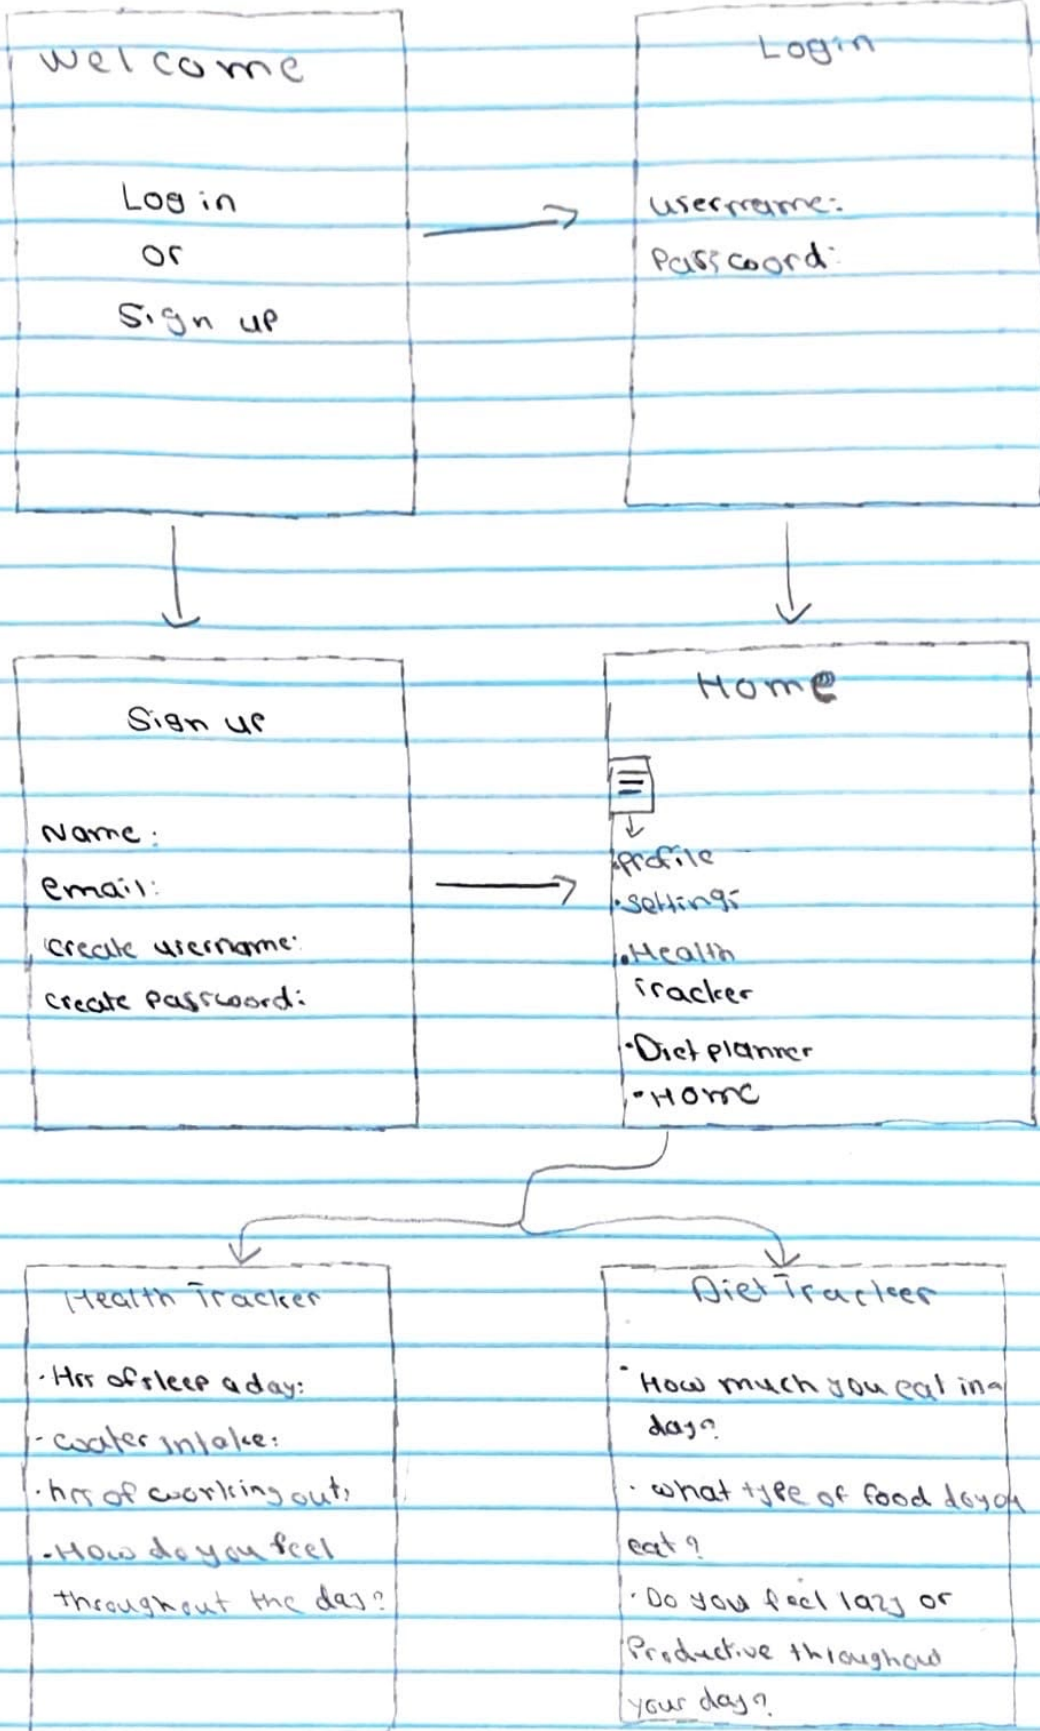 Welcome
Log in
or
Sign up
Login
username:
Password:
Sign up
Name:
email:
create username:
create password:
Home
profile
settings
Health
Tracker
Diet planner
Home
Health Tracker
Hrs of sleep a day:
water intake:
hrs of working out:
How do you feel
throughout the day?
Diet Tracker
How much you eat in a
day?
what type of food do you
eat?
Do you feel lazy or
Productive throughout
your day?